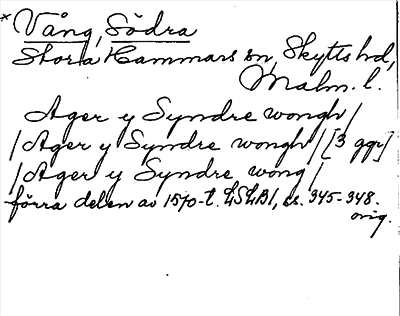 * Vång, Södra
Stora Hammars sn, Skytts hd,
Malm. l.
Ager y Syndre wongh /
/ Ager y Syndre wongh / [3 ggr]
/ Ager y Syndre wong /
förra delen av 1570-t. LSLB1, ss. 345-348.
orig.